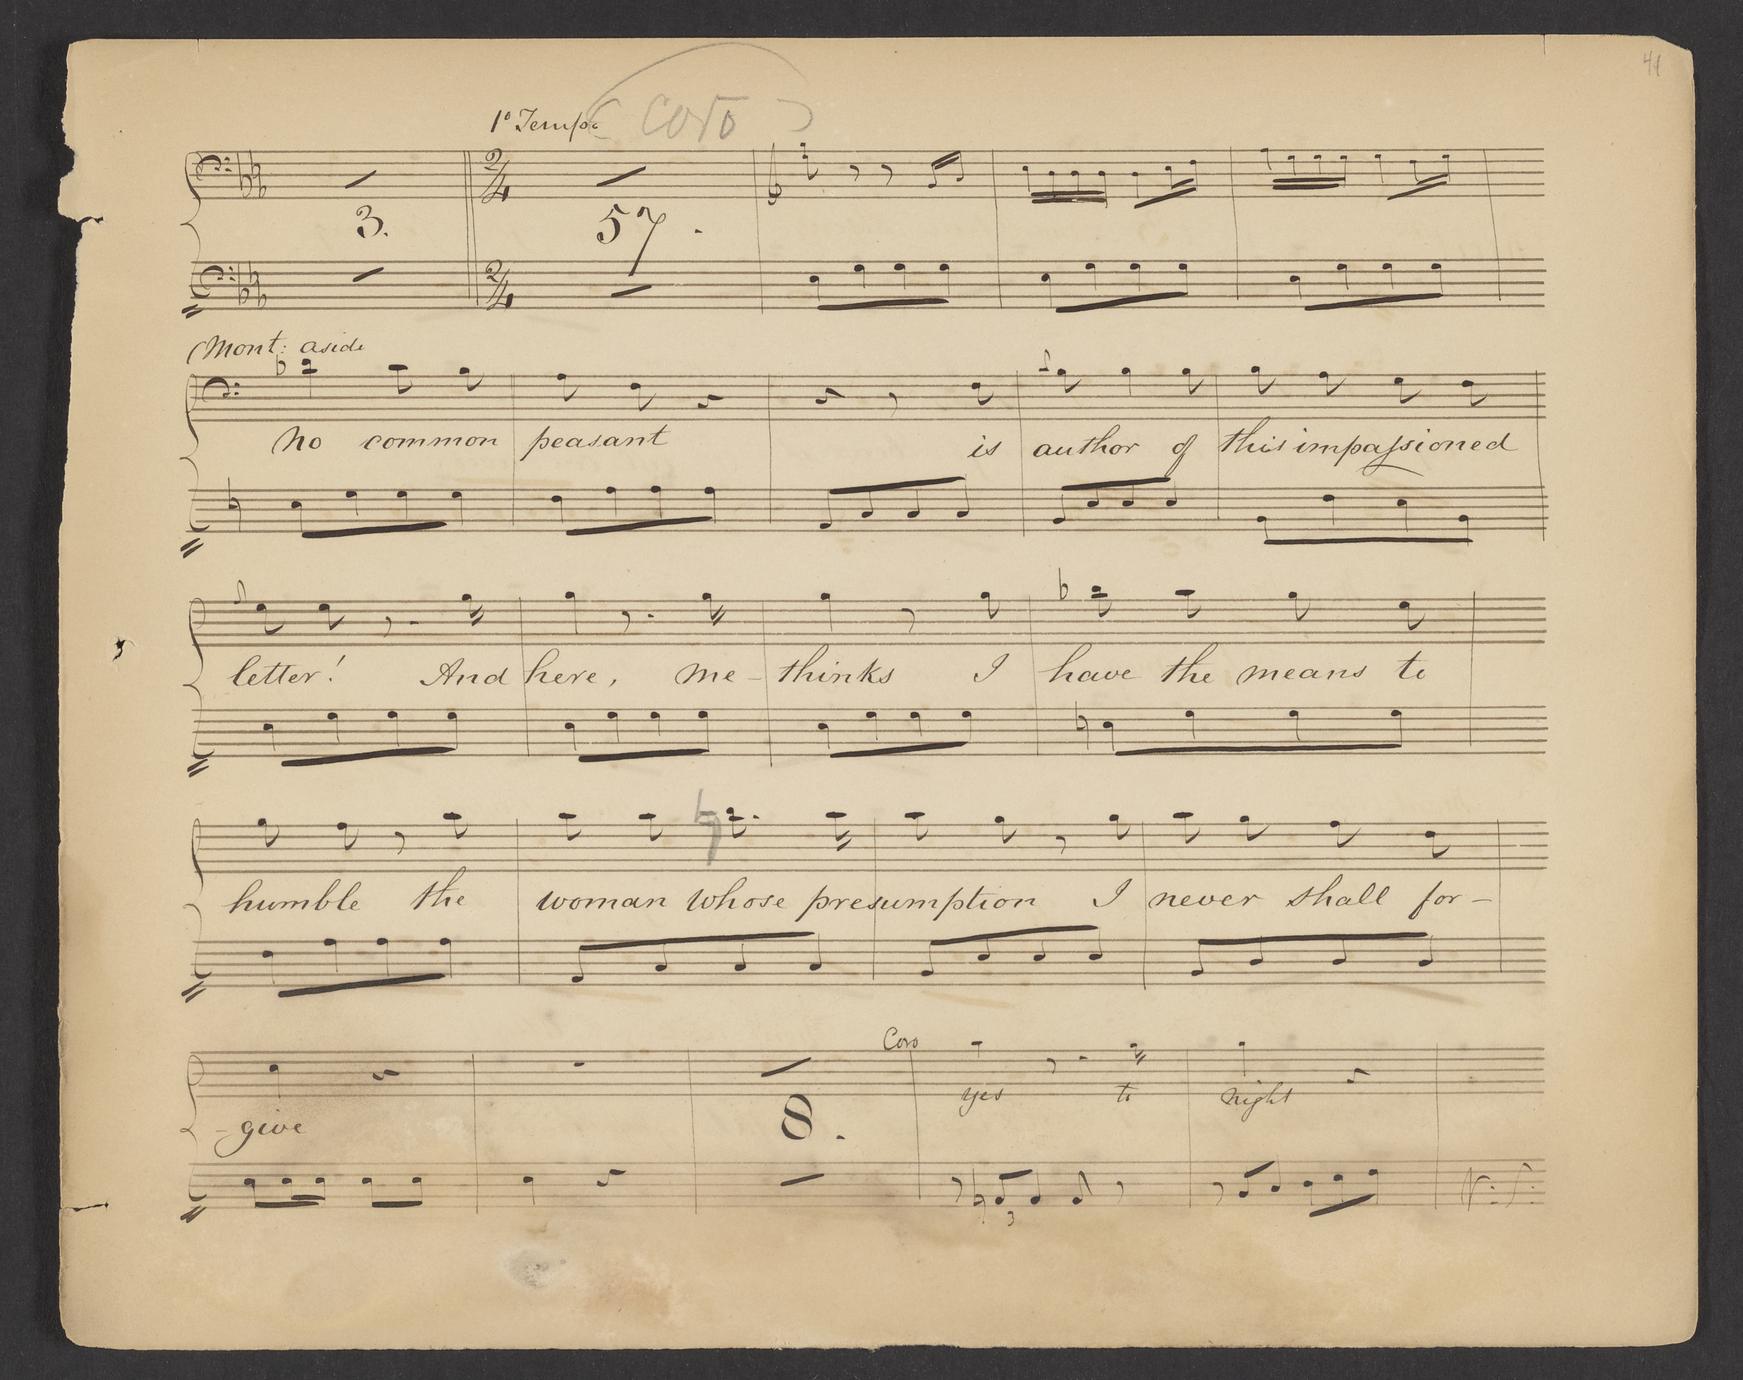 41
1º Tempo (Coro)
2/4 2/4
3. 57.
(Mont: aside
No common peasant is author of this impassioned
letter! And here, me- thinks I have the means to
humble the woman whose presumption I never shall for-
Coro
yes to night
8.
-give
3